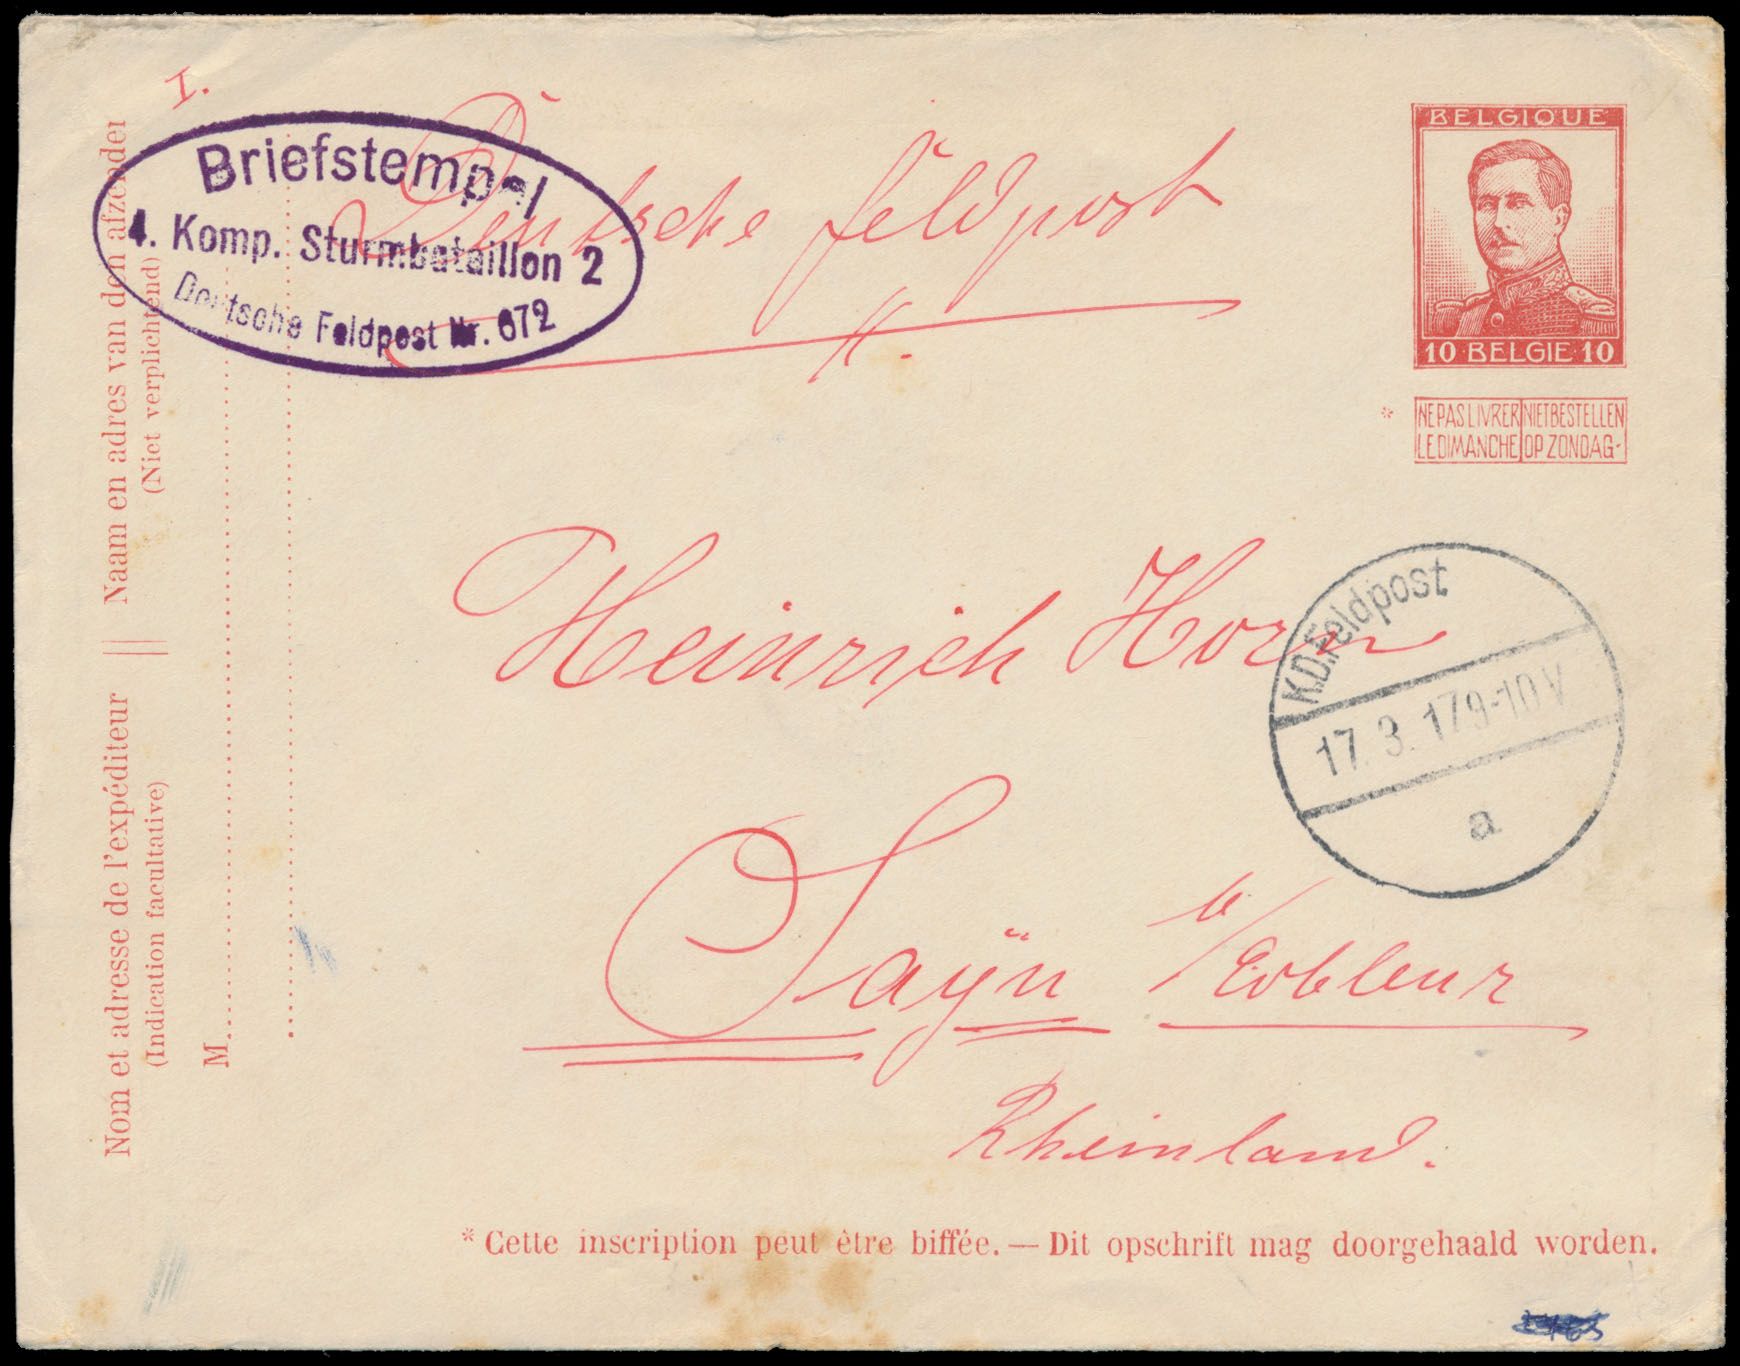 I.
Briefstempel
4. Komp. Sturmbataillon 2
Deutsche Feldpost Nr. 672
Deutsche Feldpost
BELGIQUE
10 BELGIE 10
* NE PAS LIVRER LE DIMANCHE
NIET BESTELLEN OP ZONDAG
Naam en adres van den afzender
(Niet verplichtend)
Nom et adresse de l'expéditeur
(Indication facultative)
M
Heinrich Horn
K.D. Feldpost
17. 3. 17 9-10 V
a
Saÿn b/Coblenz
Rheinland.
* Cette inscription peut être biffée. — Dit opschrift mag doorgehaald worden.